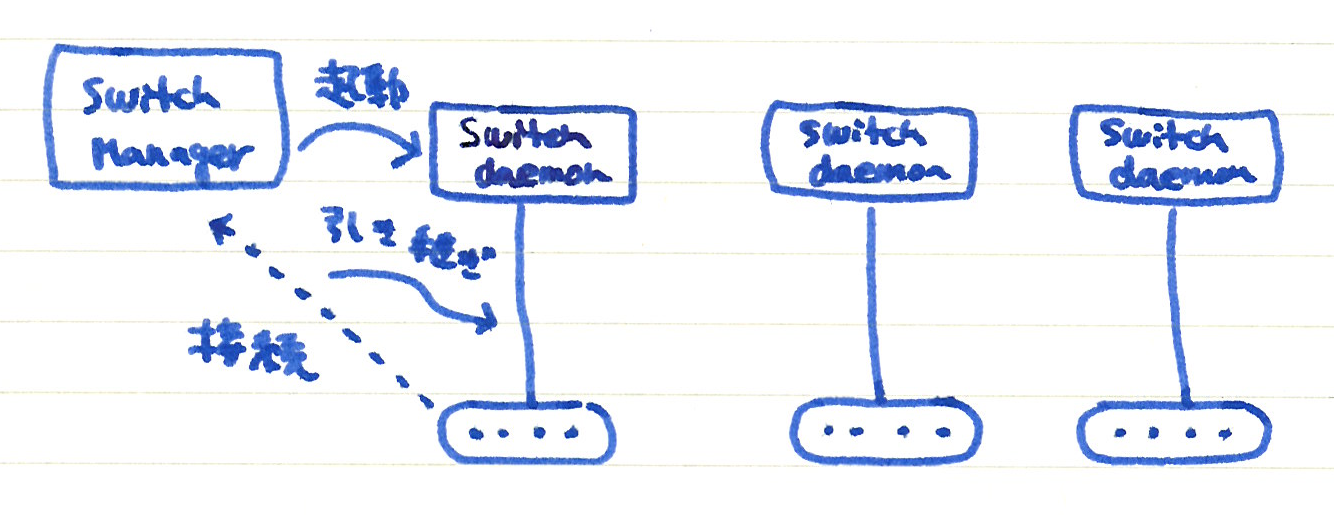 Switch
Manager
起動
Switch
daemon
Switch
daemon
Switch
daemon
引き継ぎ
接続